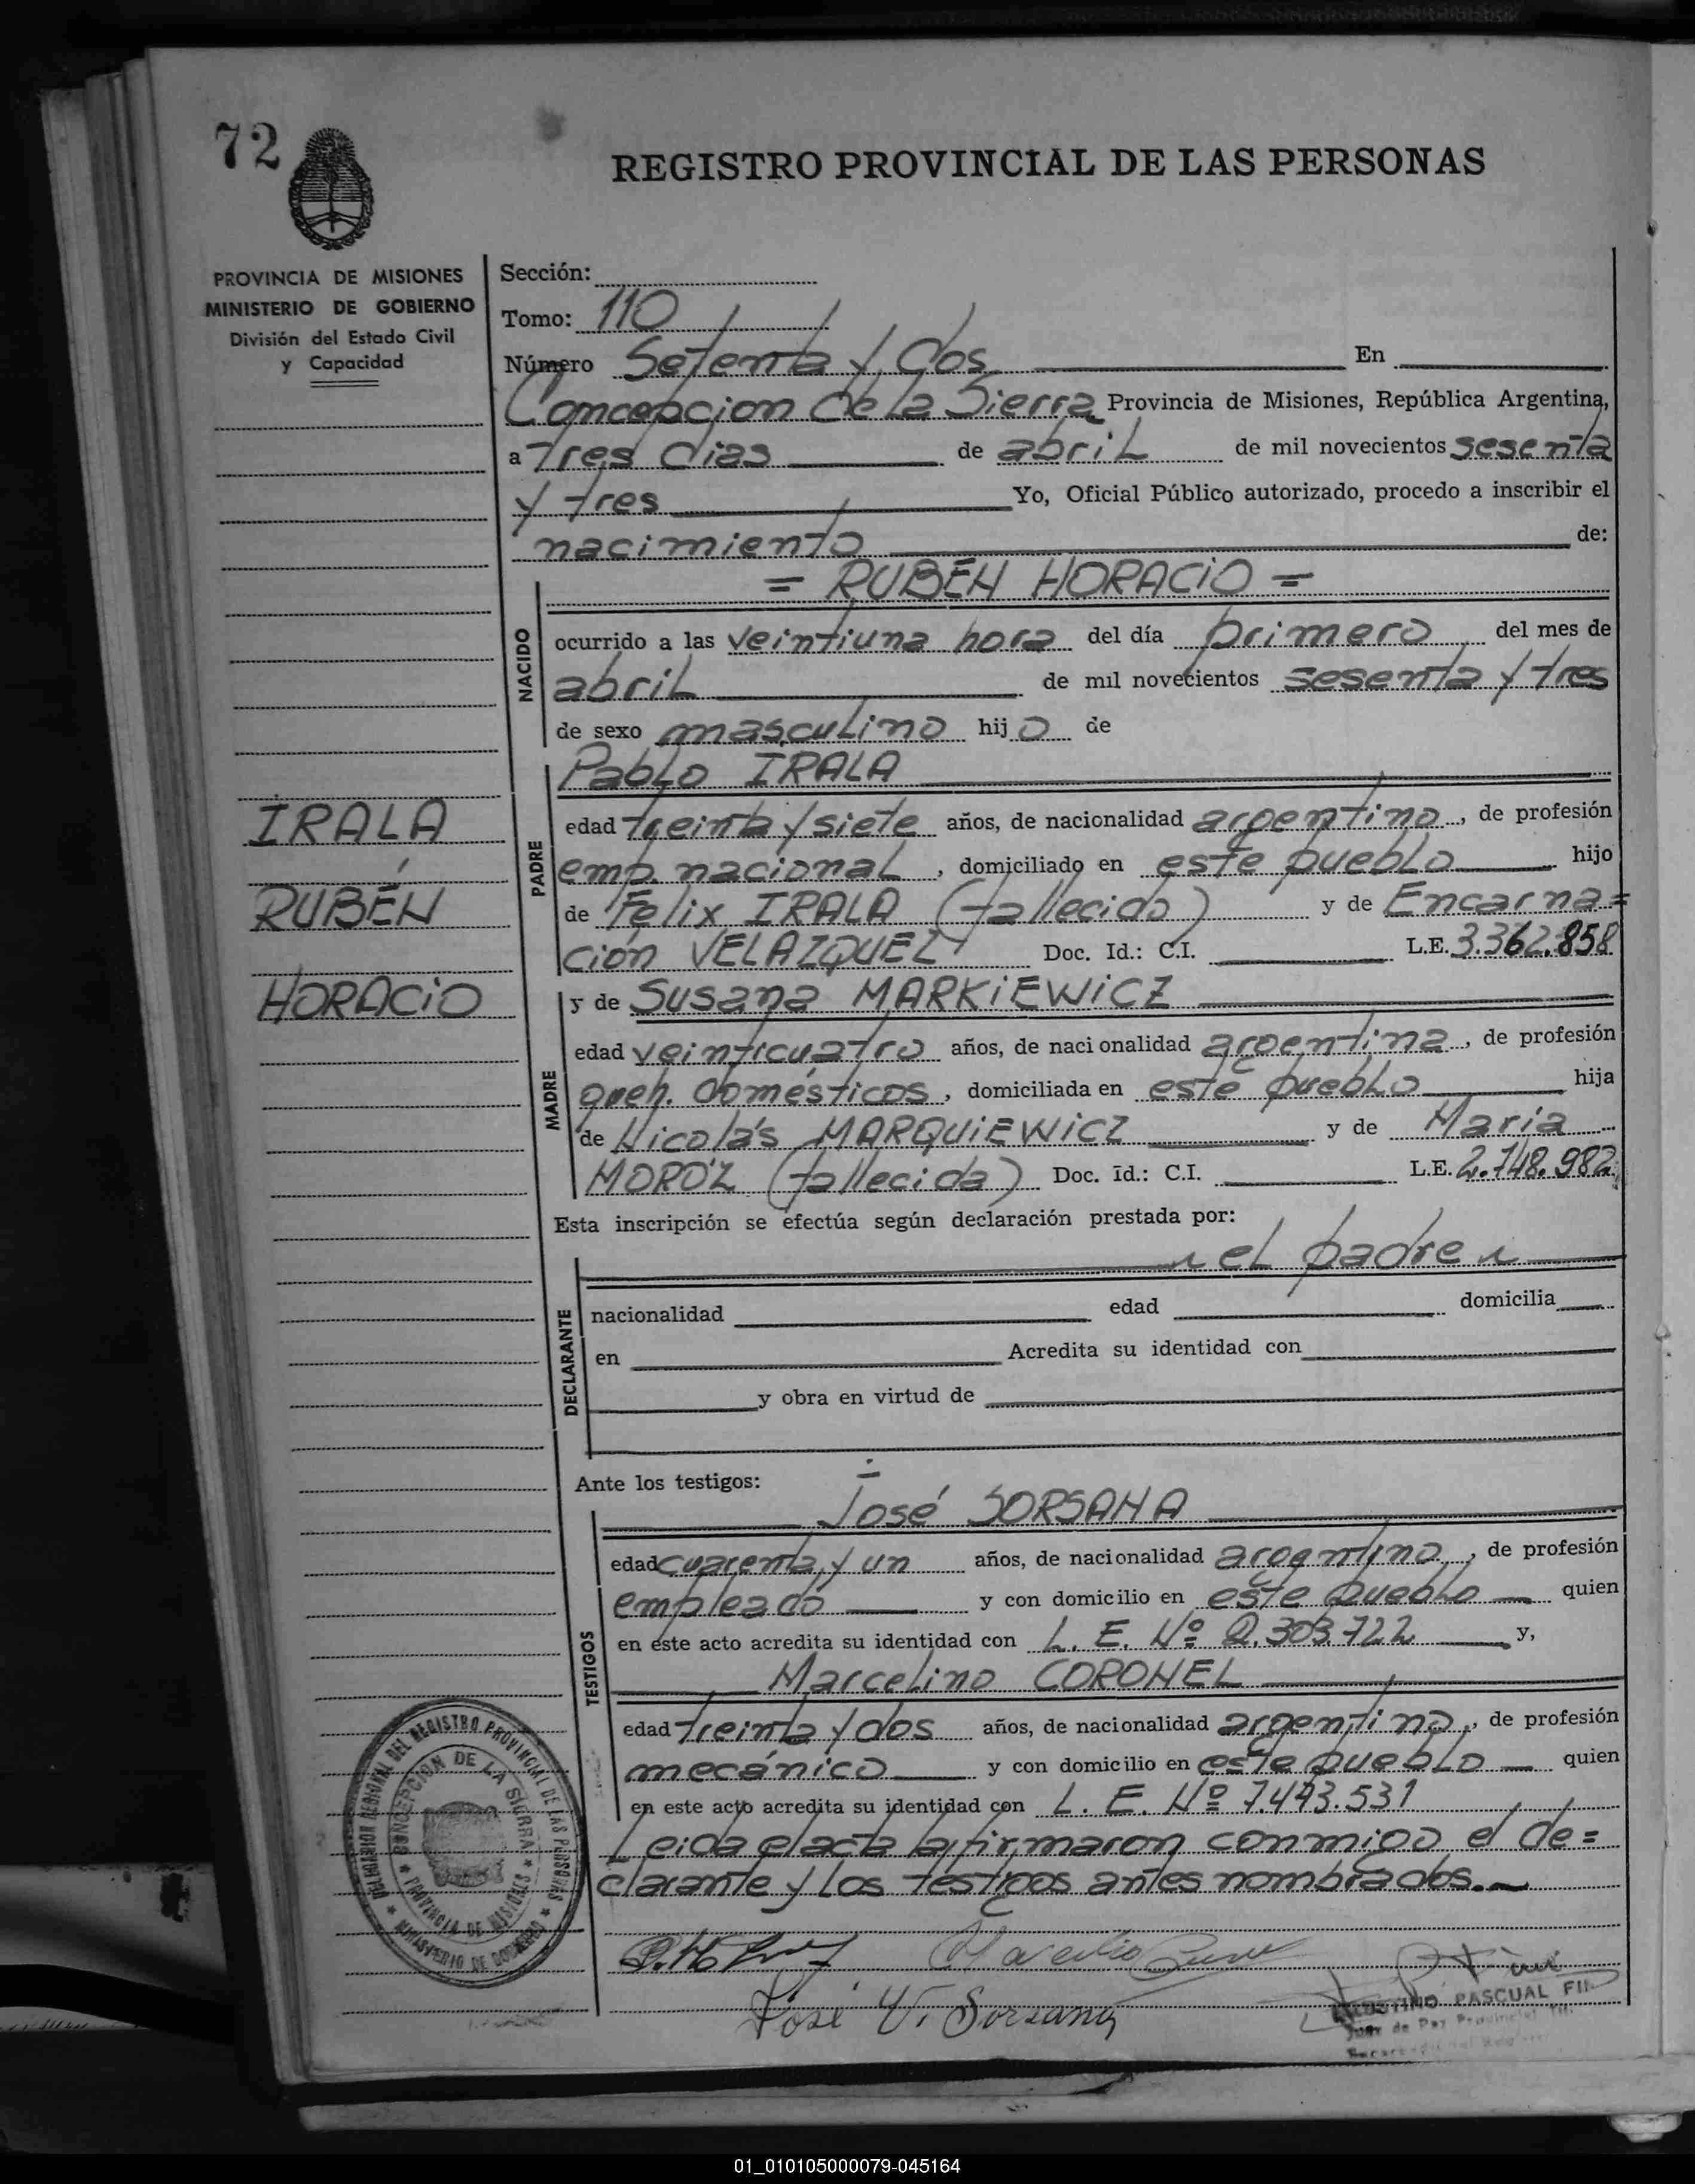 72
REGISTRO PROVINCIAL DE LAS PERSONAS
PROVINCIA DE MISIONES
MINISTERIO DE GOBIERNO
División del Estado Civil
y Capacidad
Sección:
Tomo: 110
Número Setenta y dos En
Concepcion de la Sierra Provincia de Misiones, República Argentina,
a tres dias de abril de mil novecientos sesenta
y tres Yo, Oficial Público autorizado, procedo a inscribir el
nacimiento de:
= RUBÉN HORACIO =
NACIDO
ocurrido a las veintiuna hora del día primero del mes de
abril de mil novecientos sesenta y tres
de sexo masculino hijo de
Pablo IRALA
IRALA
RUBÉN
HORACIO
PADRE
edad treinta y siete años, de nacionalidad argentino, de profesión
emp. nacional, domiciliado en este pueblo hijo
de Felix IRALA (fallecido) y de Encarna=
ción VELAZQUEZ Doc. Id.: C.I. L.E. 3.362.858
y de Susana MARKIEWICZ
MADRE
edad veinticuatro años, de nacionalidad argentina, de profesión
queh. domésticos, domiciliada en este pueblo hija
de Nicolás MARQUIEWICZ y de Maria
MOROZ (fallecida) Doc. Id.: C.I. L.E. 2.748.982
Esta inscripción se efectúa según declaración prestada por:
el padre
DECLARANTE
nacionalidad edad domicilia
en Acredita su identidad con
y obra en virtud de
Ante los testigos:
José SORSANA
TESTIGOS
edad cuarenta y un años, de nacionalidad argentino, de profesión
empleado y con domicilio en este pueblo quien
en este acto acredita su identidad con L. E. Nº 2.303.722 y,
Marcelino CORONEL
edad treinta y dos años, de nacionalidad argentino, de profesión
mecánico y con domicilio en este pueblo quien
en este acto acredita su identidad con L. E. Nº 7.493.531
Leida el acta la firmaron conmigo el de=
clarante y los testigos antes nombrados.
DEL REGISTRO PROVINCIAL DE LAS PERSONAS
CONCEPCION DE LA SIERRA
PROVINCIA DE MISIONES
MINISTERIO DE GOBIERNO
José V. Sorsana
PASCUAL
Juez de Paz
01_010105000079-045164